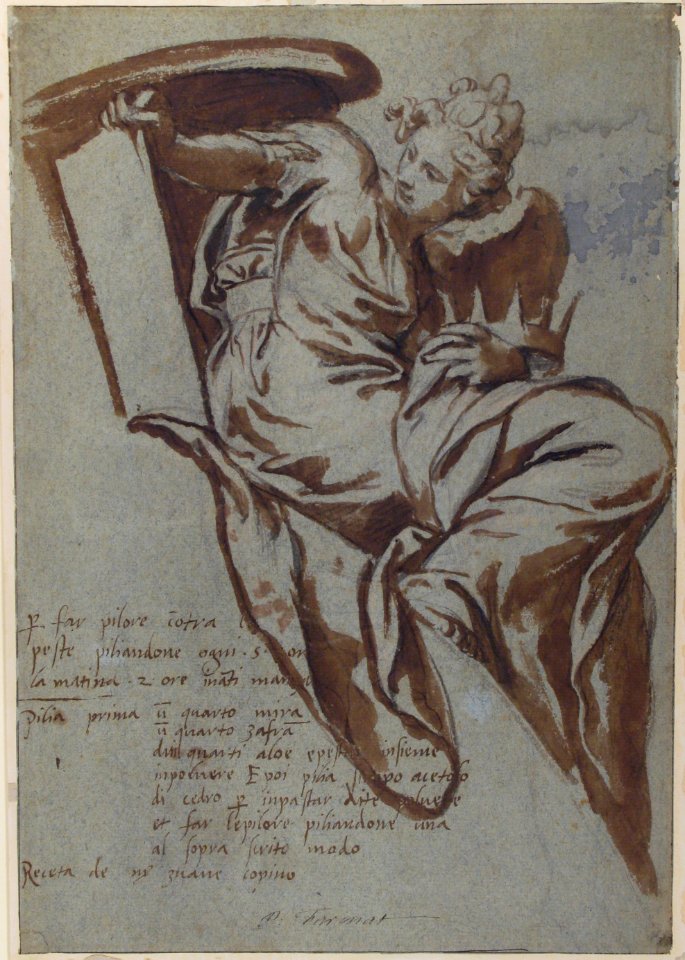 p far pilore cōtra l
peste piliandone ogni .s. on
la matina . 2 ore ināti man
Pilia prima ū quarto mira
ū quarto zafrā
dui quarti aloe epesta insieme
inpolvere E poi pilia siropo acetoso
di cedro p inpastar dite polvere
et far lepilore piliandone una
al sopra scrito modo
Receta de mr zuane copino